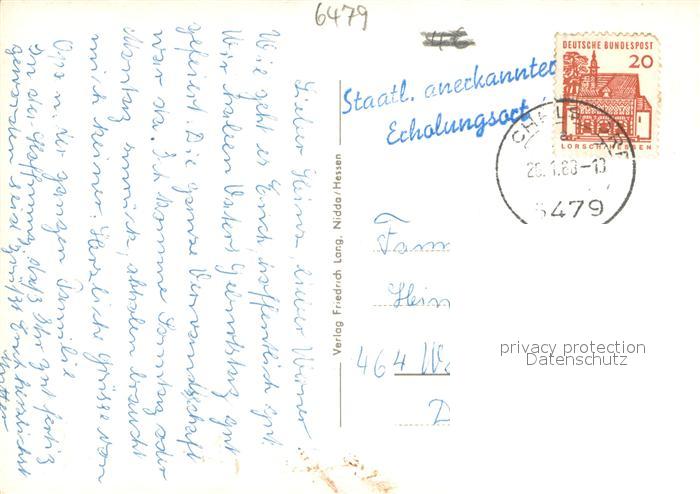 6479
46
Staatl. anerkannter
Erholungsort
DEUTSCHE BUNDESPOST
20
LORSCH/HESSEN
26.1.68-10
6479
Lieber Heinz, lieber Werner
Wie geht es Euch, hoffentlich gut
Wir haben Vaters Geburtstag gut
gefeiert. Die ganze Verwandtschaft
war da. Ich komme Sonntag oder
Montag zurück, abholen braucht
mich keiner. Herzliche Grüsse von
Opa u. der ganzen Familie
In der Hoffnung, daß Ihr gut fertig
geworden seid grüßt Euch herzlichst
Mutter
Verlag Friedrich Lang, Nidda/Hessen
Fam
Hein
464 W
D
privacy protection
Datenschutz